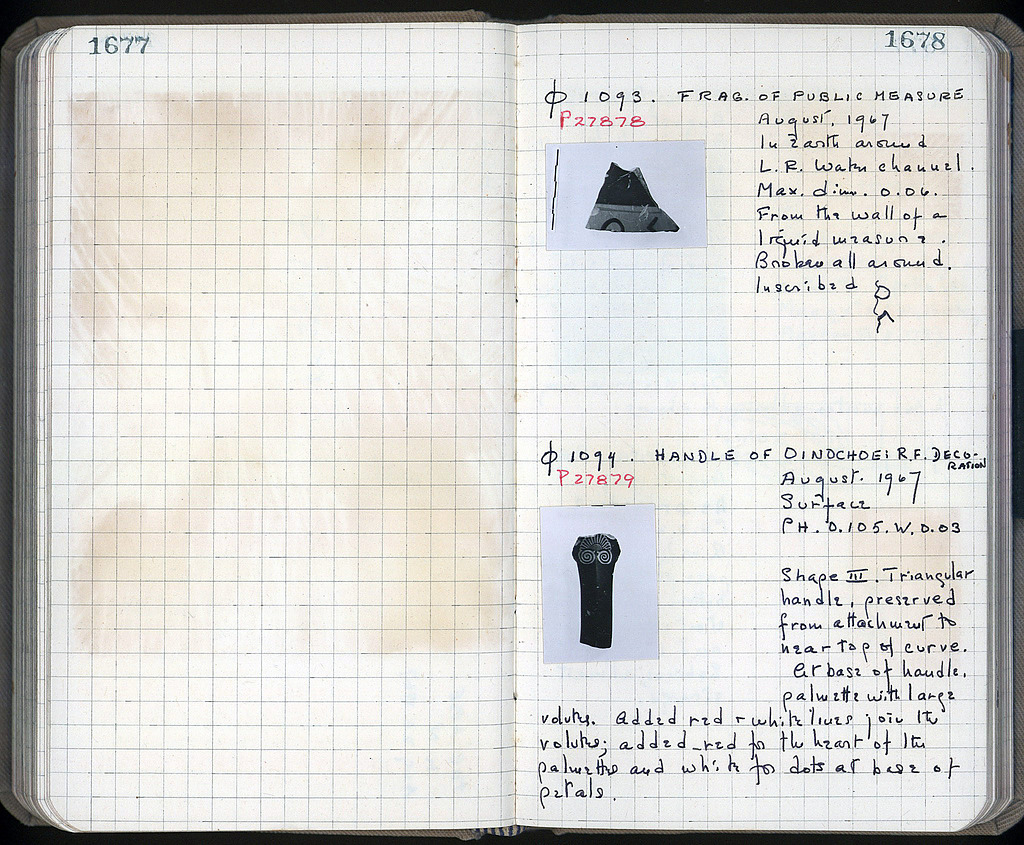 1677
1678
Φ 1093. FRAG. OF PUBLIC MEASURE
P27878
August, 1967
In Earth around
L.R. Water channel.
Max. dim. 0.06.
From the wall of a
liquid measure.
Broken all around.
Inscribed
Φ 1094. HANDLE OF OINOCHOE: R.F. DECO-
RATION
P27879
August. 1967
Surface
PH. 0.105. W. 0.03
Shape III. Triangular
handle, preserved
from attachment to
near top of curve.
At base of handle,
palmette with large
volutes. Added red + white lines join the
volutes; added red for the heart of the
palmettes and white for dots at base of
petals.